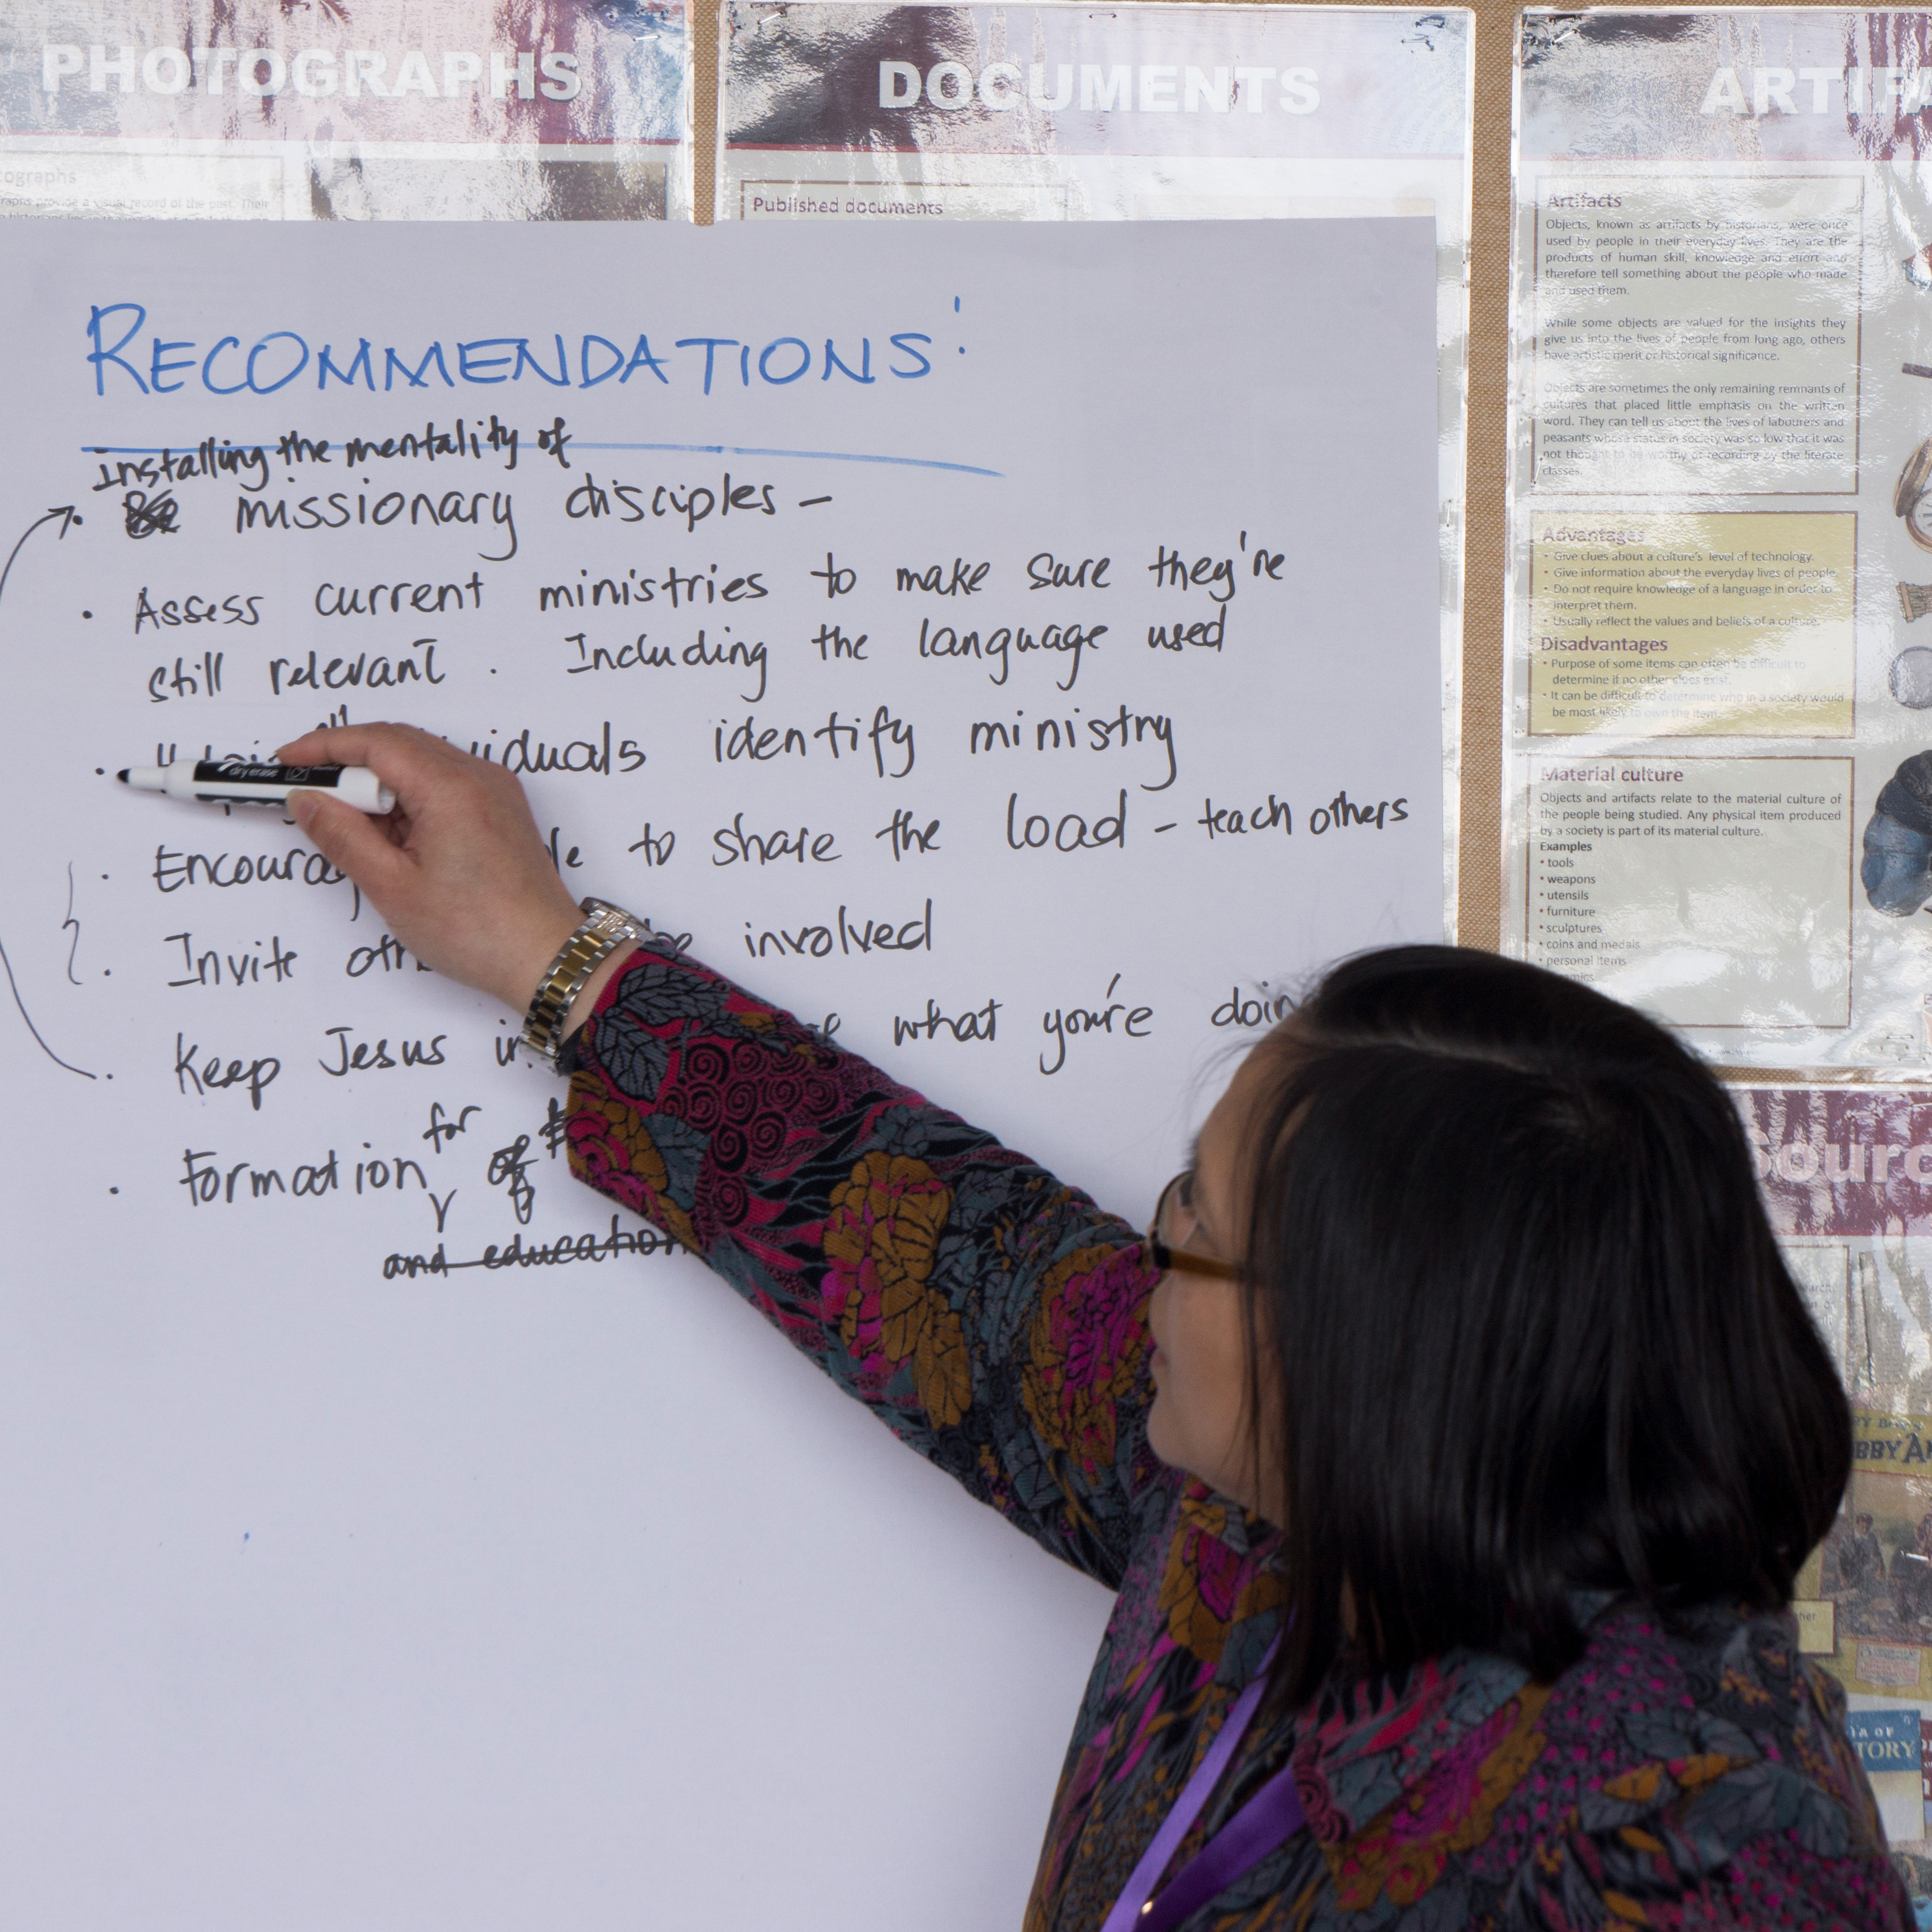 PHOTOGRAPHS
DOCUMENTS
Published documents
RECOMMENDATIONS:
Installing the mentality of
• missionary disciples -
• Assess current ministries to make sure they're
still relevant. Including the language used
• identify ministry
dry erase
• to share the load - teach others
• Invite involved
• Keep Jesus what you're
• Formation for
and education
Artifacts
Objects, known as artifacts by historians, were once
used by people in their everyday lives. They are the
products of human skill, knowledge and effort and
therefore tell something about the people who made
and used them.
While some objects are valued for the insights they
give us into the lives of people from long ago, others
have artistic merit or historical significance.
Objects are sometimes the only remaining remnants of
cultures that placed little emphasis on the written
word. They can tell us about the lives of labourers and
peasants whose status in society was so low that it was
not thought to be worthy of recording by the literate
classes.
Advantages
• Give clues about a culture's level of technology.
• Give information about the everyday lives of people.
• Do not require knowledge of a language in order to
interpret them.
• Usually reflect the values and beliefs of a culture.
Disadvantages
• Purpose of some items can often be difficult to
determine if no other clues exist.
• It can be difficult to determine who in a society would
be most likely to own the item.
Material culture
Objects and artifacts relate to the material culture of
the people being studied. Any physical item produced
by a society is part of its material culture.
Examples
• tools
• weapons
• utensils
• furniture
• sculptures
• coins and medals
• personal items